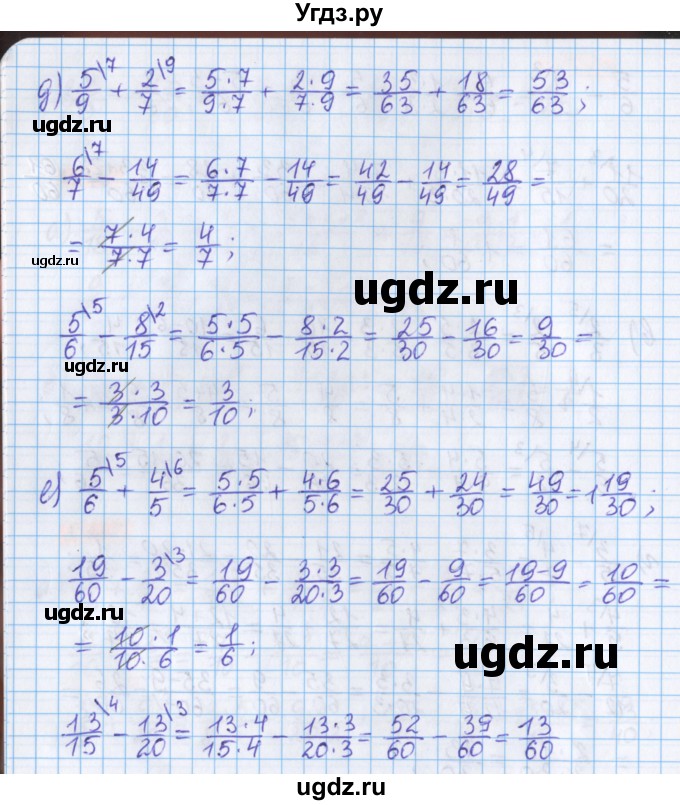 Угдз.ру
д) 5/9\7 + 2/7\9 = 5·7/9·7 + 2·9/7·9 = 35/63 + 18/63 = 53/63;
ugdz.ru
6/7\7 - 14/49 = 6·7/7·7 - 14/49 = 42/49 - 14/49 = 28/49 =
= 7·4/7·7 = 4/7;
ugdz.ru
ugdz.ru
5/6\5 - 8/15\2 = 5·5/6·5 - 8·2/15·2 = 25/30 - 16/30 = 9/30 =
ugdz.ru
= 3·3/3·10 = 3/10;
е) 5/6\5 + 4/5\6 = 5·5/6·5 + 4·6/5·6 = 25/30 + 24/30 = 49/30 = 1 19/30;
19/60 - 3/20\3 = 19/60 - 3·3/20·3 = 19/60 - 9/60 = 19-9/60 = 10/60 =
ugdz.ru
= 10·1/10·6 = 1/6;
ugdz.ru
13/15\4 - 13/20\3 = 13·4/15·4 - 13·3/20·3 = 52/60 - 39/60 = 13/60
ugdz.ru